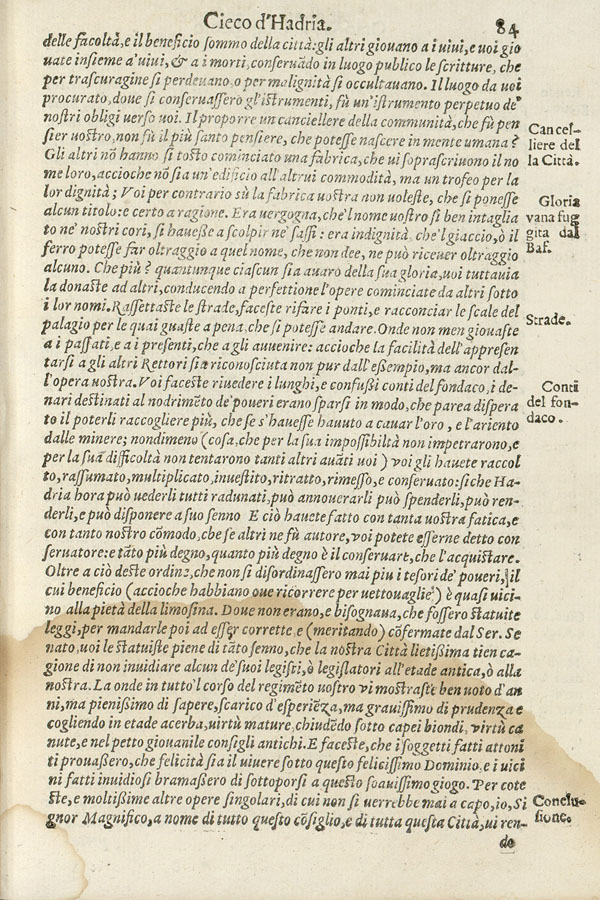 Cieco d'Hadria. 84
delle facoltà, e il beneficio sommo della città: gli altri giouano a i uiui, e uoi gio
uate insieme a' uiui, & a i morti, conseruãdo in luogo publico le scritture, che
per trascuragine si perdeuano, o per malignità si occultauano. Il luogo da uoi
procurato, doue si conseruassero gl'istrumenti, fù un'istrumento perpetuo de'
nostri obligi uerso uoi. Il proporre un canciellere della communità, che fù pen
sier uostro, non fù il più santo pensiere, che potesse nascere in mente umana?
Cancel-
liere del
la Città.
Gli altri nõ hanno sì tosto cominciato una fabrica, che ui soprascriuono il no
me loro, accioche nõ sia un'edificio all'altrui commodità, ma un trofeo per la
lor dignità; Voi per contrario sù la fabrica uostra non uoleste, che si ponesse
alcun titolo: e certo a ragione. Era uergogna, che'l nome uostro sì ben intaglia
to ne' nostri cori, si haueße a scolpir ne' sassi: era indignità, che'l giaccio, ò il
ferro potesse far oltraggio a quel nome, che non dee, ne può riceuer oltraggio
alcuno. Che più? quantunque ciascun sia auaro della sua gloria, uoi tuttauia
Gloria
vana fug
gita dal
Baf.
la donaste ad altri, conducendo a perfettione l'opere cominciate da altri sotto
i lor nomi. Rassettaste le strade, faceste rifare i ponti, e racconciar le scale del
palagio per le quai guaste a pena, che si potesse andare. Onde non men giouaste
Strade.
a i passati, e a i presenti, che a gli auuenire: accioche la facilità dell'appresen
tarsi a gli altri Rettori sia riconosciuta non pur dall'eßempio, ma ancor dal-
l'opera uostra. Voi faceste riuedere i lunghi, e confußi conti del fondaco, i de-
nari destinati al nodrimẽto de' poueri erano sparsi in modo, che parea dispera
to il poterli raccogliere più, che se s'hauesse hauuto a cauar l'oro, e l'ariento
Conti
del fon-
daco.
dalle minere; nondimeno (cosa, che per la sua impossibiltà non impetrarono, e
per la sua difficoltà non tentarono tanti altri auãti uoi) voi gli hauete raccol
to, rassumato, multiplicato, inuestito, ritratto, rimesso, e conseruato: sì che Ha-
dria hora può uederli tutti radunati, può annouerarli può spenderli, può ren-
derli, e può disponere a suo senno E ciò hauete fatto con tanta uostra fatica, e
con tanto nostro cõmodo, che se altri ne fù autore, voi potete esserne detto con
seruatore: e tãto più degno, quanto più degno è il conseruare, che l'acquistare.
Oltre a ciò deste ordine, che non si disordinassero mai piu i tesori de' poueri, il
cui beneficio (accioche habbiano oue ricorrere per uettouaglie) è quasi uici-
no alla pietà della limosina. Doue non erano, e bisognaua, che fossero statuite
leggi, per mandarle poi ad esser corrette e (meritando) cõfermate dal Ser. Se
nato, uoi le statuiste piene di tãto senno, che la nostra Città lietißima tien ca-
gione di non inuidiare alcun de' suoi legisti, ò legislatori all'etade antica, ò alla
nostra. La onde in tutto'l corso del regimẽto uostro vi mostraste ben uoto d'an
ni, ma pienißimo di sapere, scarico d'esperiẽza, ma grauissimo di prudenza e
cogliendo in etade acerba, uirtù mature, chiudẽdo sotto capei biondi, virtù ca
nute, e nel petto giouanile consigli antichi. E faceste, che i soggetti fatti attoni
ti prouaßero, che felicità sia il uiuere sotto questo felicissimo Dominio, e i uici
ni fatti inuidiosi bramaßero di sottoporsi a questo soauissimo giogo. Per cote
ste, e moltißime altre opere singolari, di cui non si uerrebbe mai a capo, io, Si
gnor Magnifico, a nome di tutto questo cõsiglio, e di tutta questa Città, ui ren-
Conclu-
sione.
de